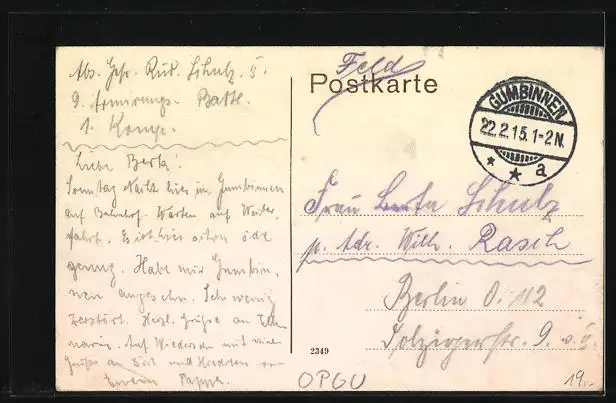 Abs. Gefr. Rud. Schulz. II.
9. Armirungs-Battl.
1. Komp.
Liebe Berta!
Sonntag Nacht hier in Gumbinnen
auf Bahnhof. Warten auf Weiter
fahrt. Es ist hier schon öde
genug. Habe mir Gumbin-
nen angesehn. Sehr wenig
zerstört. Herzl. Grüße an
Auf Wiedersehn mit vielen
Grüße an Dich und von
Pappa.
Feld
Postkarte
GUMBINNEN
22.2.15.1-2N.
* * a
Frau Berta Schulz
p. Adr. Wilh. Rasch
Berlin O. 112
Solzigerstr. 9. v. II
2349
OPGU
19,-